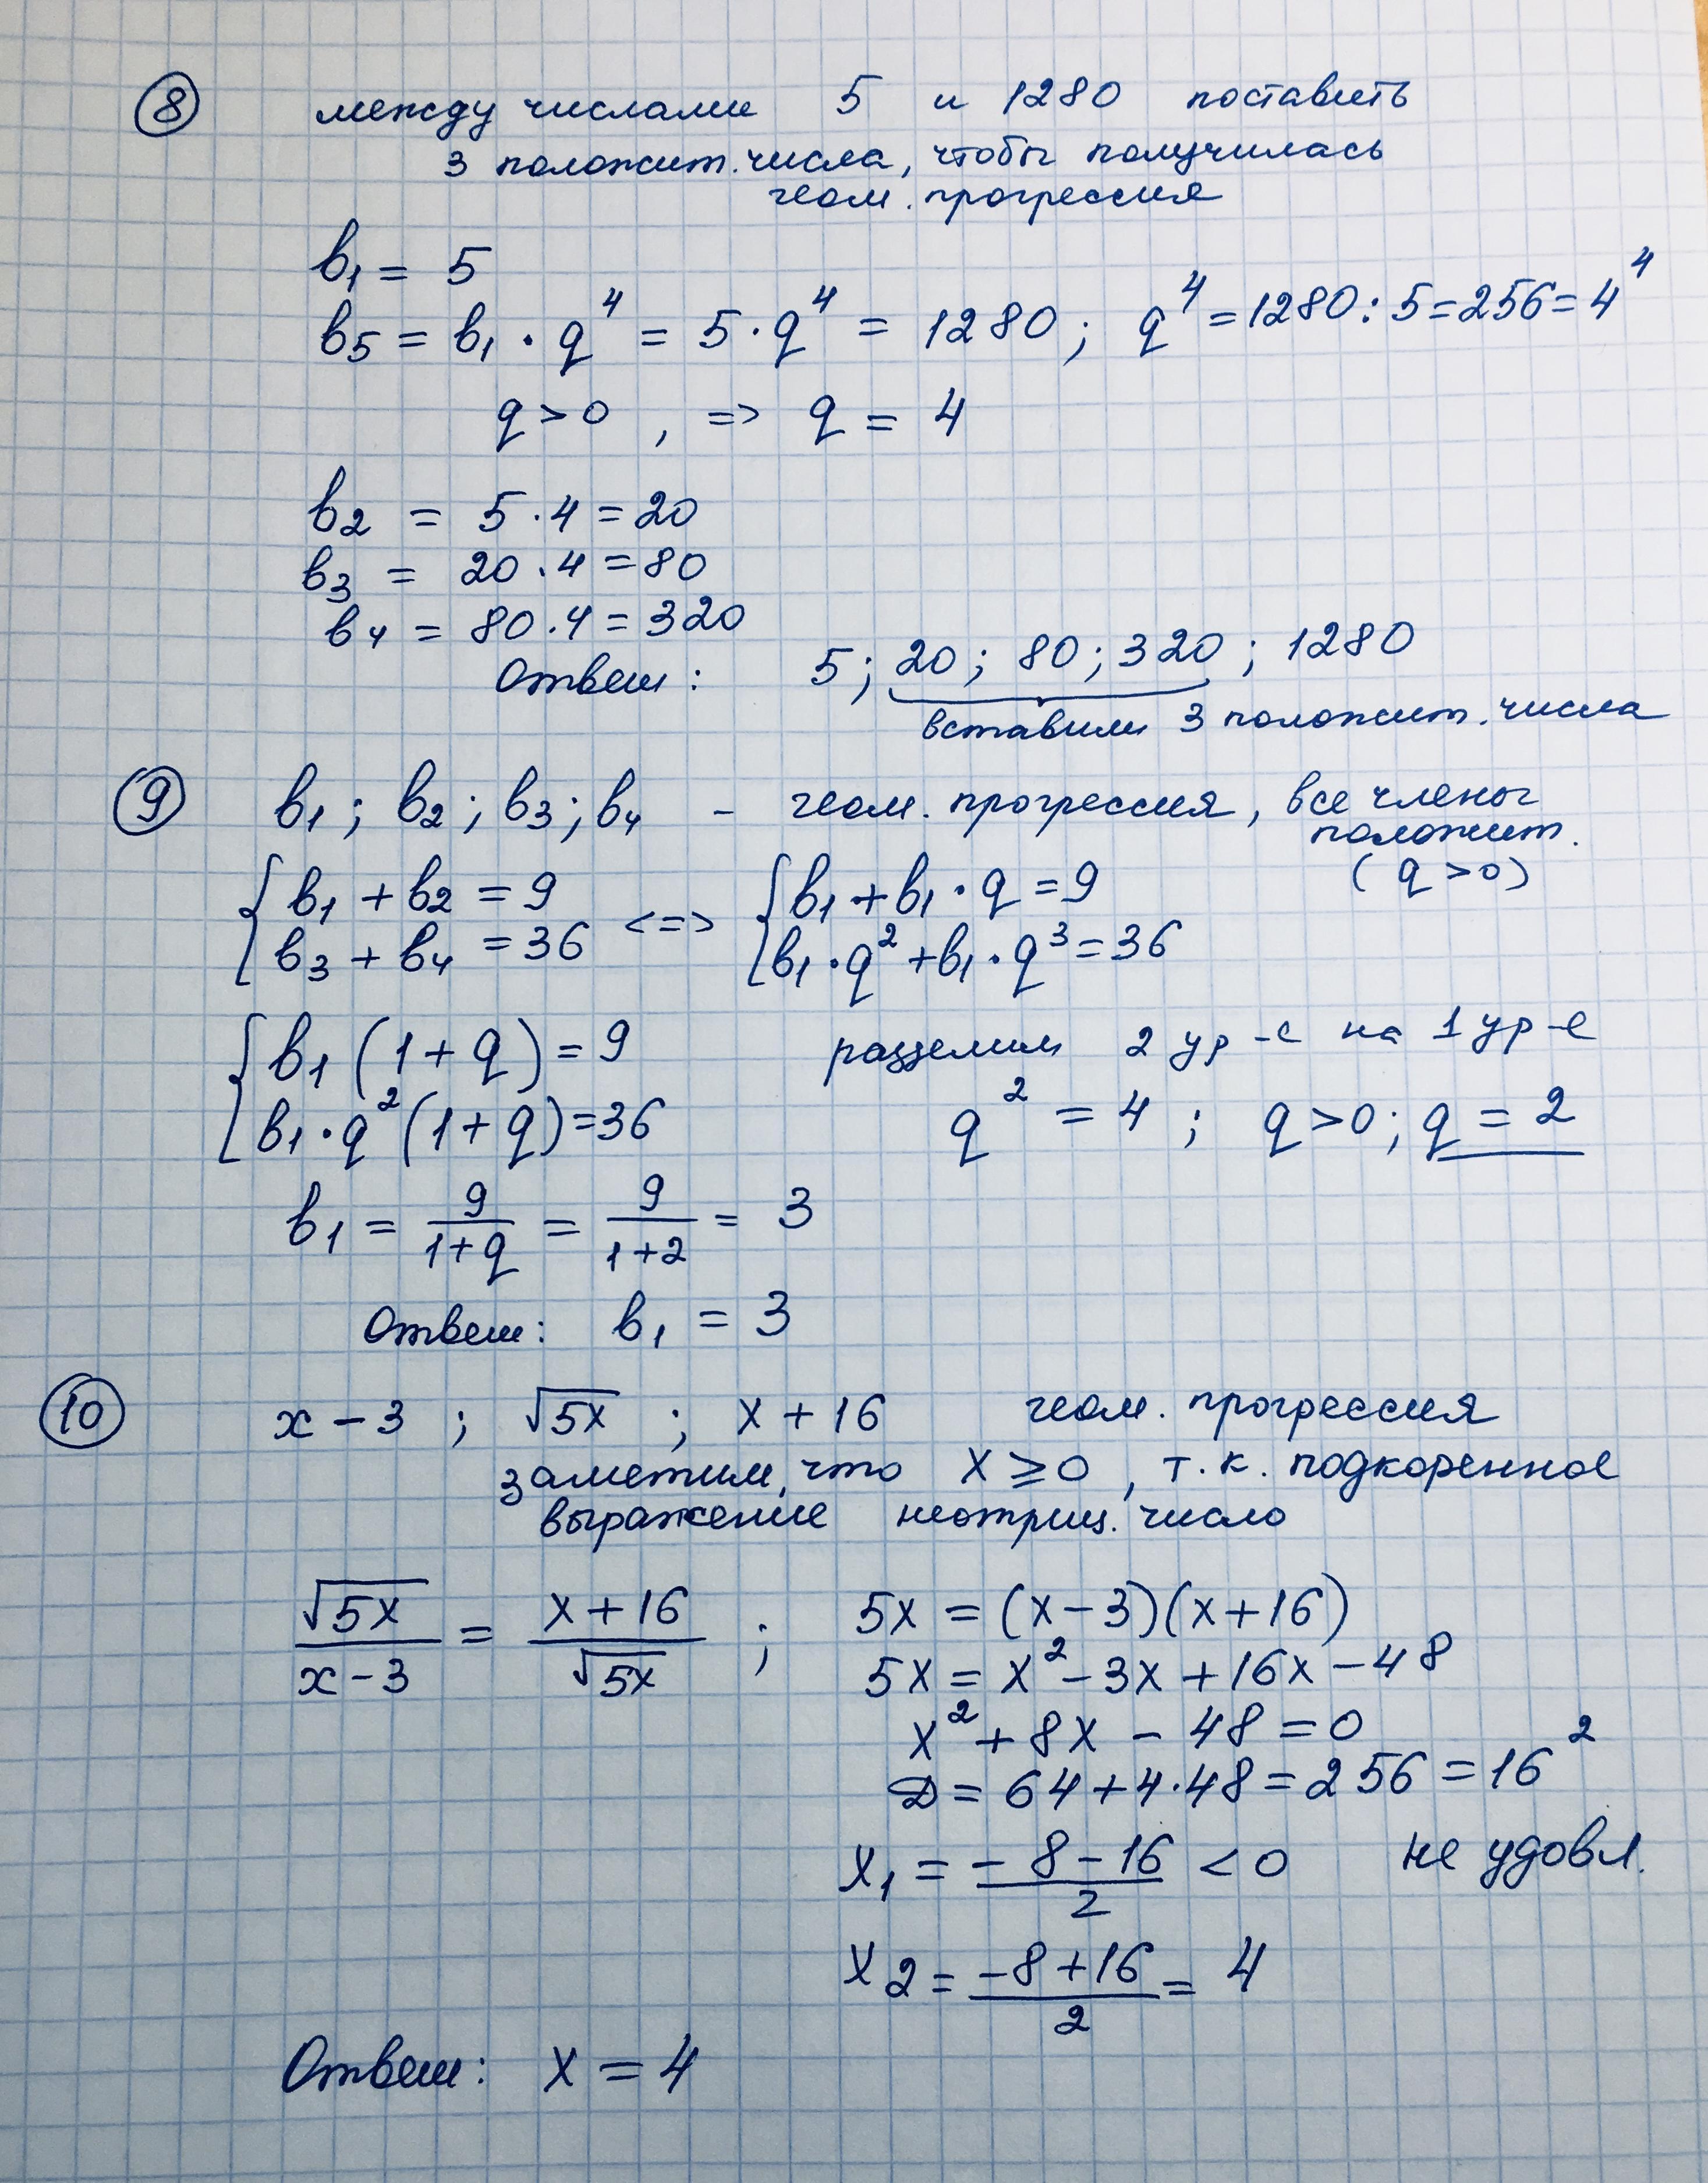 8 между числами 5 и 1280 поставить
3 положит. числа, чтобы получилась
геом. прогрессия
b₁ = 5
b₅ = b₁ · q⁴ = 5 · q⁴ = 1280 ; q⁴ = 1280 : 5 = 256 = 4⁴
q > 0 , => q = 4
b₂ = 5 · 4 = 20
b₃ = 20 · 4 = 80
b₄ = 80 · 4 = 320
Ответ : 5 ; 20 ; 80 ; 320 ; 1280
вставили 3 положит. числа
9 b₁ ; b₂ ; b₃ ; b₄ – геом. прогрессия, все члены
положит.
(q > 0)
{ b₁ + b₂ = 9 <=> { b₁ + b₁ · q = 9
b₃ + b₄ = 36 b₁ · q² + b₁ · q³ = 36
{ b₁ (1 + q) = 9 разделим 2 ур-е на 1 ур-е
b₁ · q² (1 + q) = 36 q² = 4 ; q > 0 ; q = 2
b₁ = 9/(1+q) = 9/(1+2) = 3
Ответ : b₁ = 3
10 x – 3 ; √5x ; x + 16 геом. прогрессия
заметим, что x ⩾ 0 , т.к. подкоренное
выражение неотриц. число
√5x/(x-3) = (x+16)/√5x ; 5x = (x – 3)(x + 16)
5x = x² – 3x + 16x – 48
x² + 8x – 48 = 0
D = 64 + 4 · 48 = 256 = 16²
x₁ = (– 8 – 16)/2 < 0 не удовл.
x₂ = (–8 + 16)/2 = 4
Ответ : x = 4